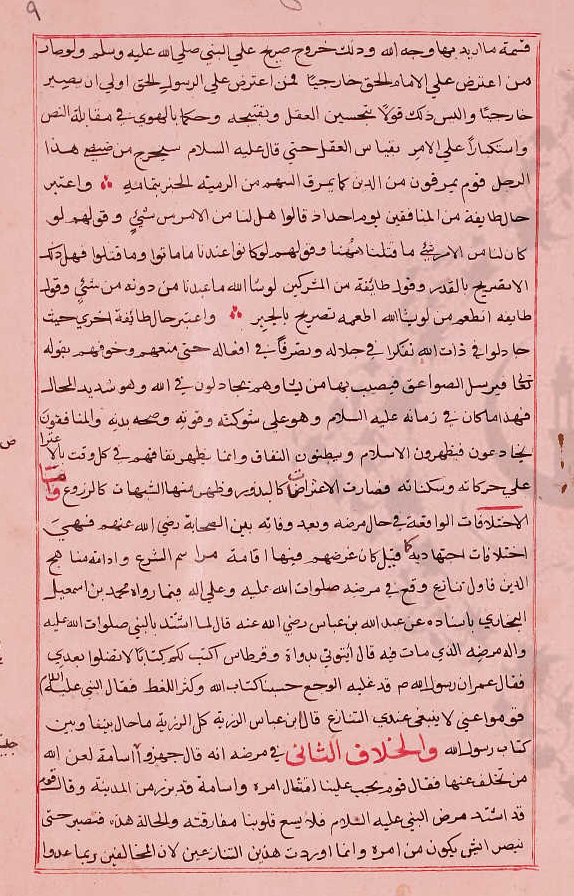 ٩
قسمة ما اريد بها وجه الله وذلك خروج صريح علي النبي صلي الله عليه وسلم ولو صار
من اعترض علي الامام الحق خارجيا فمن اعترض علي الرسول الحق اولي ان يصير
خارجيا واليس ذلك قولا بتحسين العقل وتقبيحه وحكما بالهوي في مقابلة النص
واستكبارا علي الامر بقياس العقل حتي قال عليه السلام سيخرج من ضيضي هذا
الرجل قوم يمرقون من الدين كما يمرق السهم من الرمية الخبر بتمامه واعتبر
حال طايفة من المنافقين يوم احد اذ قالوا هل لنا من الامر من شئ وقولهم لو
كان لنا من الامر شئ ما قتلنا ههنا وقولهم لو كانوا عندنا ما ماتوا وما قتلوا فهل ذلك
الا تصريح بالقدر وقول طائفة من المشركين لو شا الله ما عبدنا من دونه من شئ وقول
طايفه انطعم من لو يشا الله اطعمه تصريح بالجبر واعتبر حال طائفة اخري حيث
جادلوا في ذات الله تفكرا في جلاله وتصرفا في افعاله حتي منعهم وخوفهم بقوله
تعا ويرسل الصواعق فيصيب بها من يشا وهم يجادلون في الله وهو شديد المحال
فهذا ما كان في زمانه عليه السلام وهو علي شوكته وقوته وصحه بدنه والمنافقون
يخادعون فيظهرون الاسلام ويبطنون النفاق وانما يظهر نفاقهم في كل وقت بالاعترا
علي حركاته وسكناته فصارت الاعتراضات كالبدور وظهر منها الشبهات كالزروع واما
الاختلافات الواقعة في حال مرضه وبعد وفاته بين الصحابة رضي الله عنهم فهي
اختلافات اجتهادية كما قيل كان غرضهم فيها اقامة مراسم الشرع وادامة مناهج
الدين فاول تنازع وقع في مرضه صلوات الله عليه وعلي اله فيما رواه محمد بن اسمعيل
البخاري باسناده عن عبد الله بن عباس رضي الله عنه قال لما اشتد بالنبي صلوات الله عليه
واله مرضه الذي مات فيه قال ايتوني بدواة وقرطاس اكتب لكم كتابا لا تضلوا بعدي
فقال عمر ان رسول الله ص قد غلبه الوجع حسبنا كتاب الله وكثر اللغط فقال النبي عليه السلام
قوموا عني لا ينبغي عندي التنازع قال ابن عباس الرزية كل الرزية ما حال بيننا وبين
كتاب رسول الله والخلاف الثاني في مرضه انه قال جهزوا اسامة لعن الله
من تخلف عنها فقال قوم يجب علينا امتثال امره واسامة قد برز من المدينة وقال قوم
قد اشتد مرض النبي عليه السلام فلا يسع قلوبنا مفارقته والحالة هذه فنصبر حتي
نبصر ايش يكون من امره وانما اوردت هذين التنازعين لان المخالفين ربما عدوا